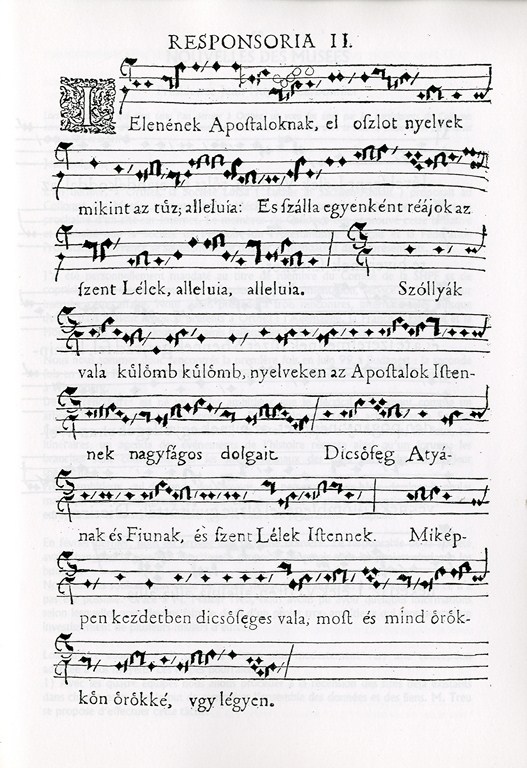 RESPONSORIA II.
IElenének Apoſtaloknak, el oſzlot nyelvek
mikint az tűz; alleluia: Es ſzálla egyenként réájok az
ſzent Lélek, alleluia, alleluia. Szóllyák
vala kůlőmb kůlőmb, nyelveken az Apoſtalok Iſten-
nek nagyſágos dolgait Dicsőſęg Atyá-
nak és Fiunak, és ſzent Lélek Iſtennek. Mikép-
pen kezdetben dicsőſęges vala, moſt és mind őrők-
kőn őrőkké, vgy légyen.